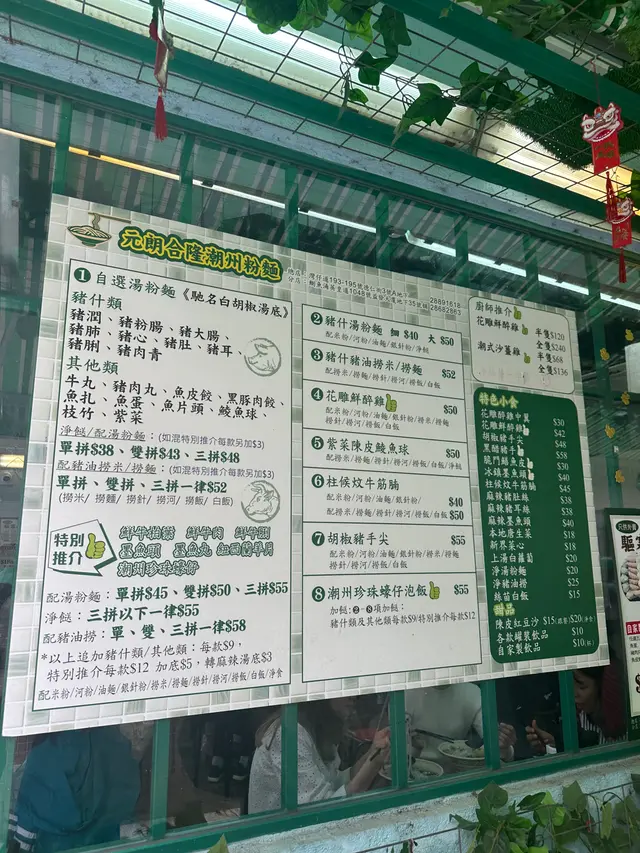 元朗合隆潮州粉麵
總店：灣仔道193-195號
28891618
28682863
① 自選湯粉麵《馳名白胡椒湯底》
豬什類
豬潤、豬粉腸、豬大腸、
豬肺、豬心、豬肚、豬耳、
豬脷、豬肉青
其他類
牛丸、豬肉丸、魚皮餃、黑豚肉餃、
魚扎、魚蛋、魚片頭、鯪魚球、
枝竹、紫菜
淨餸/配湯粉麵：(如混特別推介每款另加$3)
單拼$38、雙拼$43、三拼$48
配豬油撈米/撈麵：(如混特別推介每款另加$3)
單拼、雙拼、三拼一律$52
(撈米/ 撈麵/ 撈針/ 撈河/ 撈飯/ 白飯)
特別推介
潮州珍珠蠔餅
配湯粉麵：單拼$45、雙拼$50、三拼$55
淨餸：三拼以下一律$55
配豬油撈：單、雙、三拼一律$58
*以上追加豬什類/其他類：每款$9，
特別推介每款$12 加底$5，轉麻辣湯底$3
配米粉/河粉/油麵/銀針粉/撈米/撈麵/撈針/撈河/撈飯/白飯/淨食
② 豬什湯粉麵 細 $40 大 $50
配米粉/河粉/油麵/銀針粉/淨餸
③ 豬什豬油撈米/撈麵 $52
配撈米/撈麵/撈針/撈河/撈飯/白飯
④ 花雕鮮醉雞 $50
配米粉/河粉/油麵/銀針粉/撈米/撈麵
撈針/撈河/撈飯/白飯
⑤ 紫菜陳皮鯪魚球 $50
配撈米/撈麵/撈針/撈河/撈飯/白飯/淨餸
⑥ 柱侯炆牛筋腩
配米粉/河粉/油麵/銀針粉/ $40
配撈米/撈麵/撈針/撈河/撈飯/白飯 $50
⑦ 胡椒豬手尖 $55
配米粉/河粉/油麵/銀針粉/撈米/撈麵
撈針/撈河/撈飯/白飯
⑧ 潮州珍珠蠔仔泡飯 $55
加餸：②-⑧項加餸：
豬什類及其他類每款$9/特別推介每款$12
廚師推介
花雕鮮醉雞 半隻$120
全隻$240
潮式沙薑雞 半隻$68
全隻$136
特色小食
花雕醉雞中翼 $30
花雕鮮醉雞 $42
胡椒豬手尖 $48
黑醋豬手 $58
龍門鱔魚皮 $30
冰鎮墨魚頭 $40
柱侯炆牛筋腩 $45
麻辣豬肚絲 $38
麻辣豬耳絲 $38
麻辣墨魚頭 $40
本地唐生菜 $18
新界菜心 $18
上湯白蘿蔔 $20
淨湯粉麵 $20
淨豬油撈 $25
絲苗白飯 $15
甜品
陳皮紅豆沙 $15(跟餐)$20(淨食)
各款罐裝飲品 $10
自家製飲品 $10(杯)